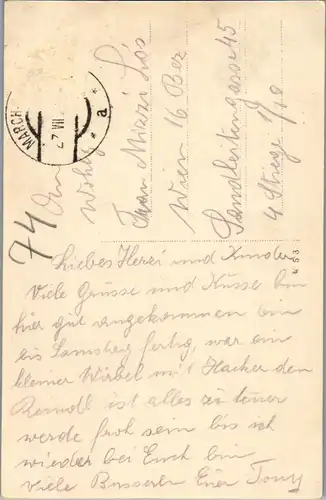 MARCH
27 VII
* a *
74
An
Wohlg.
Frau Mizzi Lós
Wien 16 Bez
Sandleitengasse 45
4 Stiege 1/18
453
Liebes Herzi und Kinder
Viele Grüsse und Küsse bin
hier gut angekommen bin
bis Samstag fertig, war ein
kleiner Wirbel mit Hacker den
ist alles zu teuer
werde froh sein bis ich
wieder bei Euch bin
Viele Busserln Euer Tony